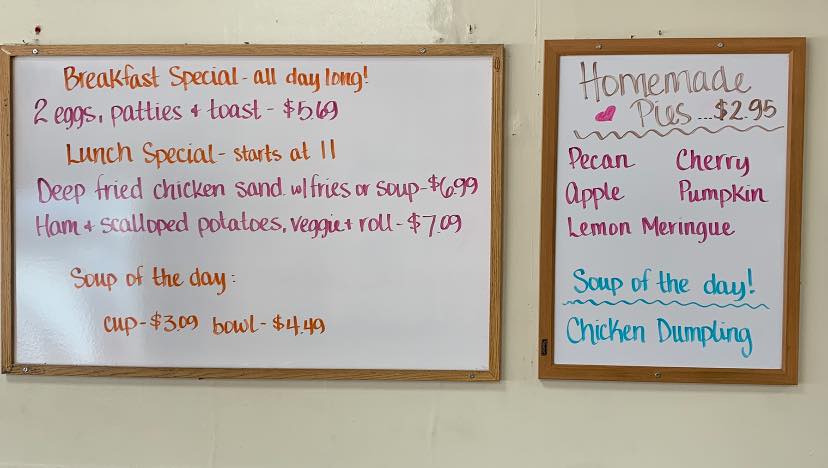 Breakfast Special - all day long!
2 eggs, patties + toast - $5.69
Lunch Special - starts at 11
Deep fried chicken sand. w/ fries or soup - $6.99
Ham + scalloped potatoes, veggie + roll - $7.09
Soup of the day:
cup - $3.09 bowl - $4.49
Homemade
Pies...$2.95
Pecan Cherry
Apple Pumpkin
Lemon Meringue
Soup of the day!
Chicken Dumpling